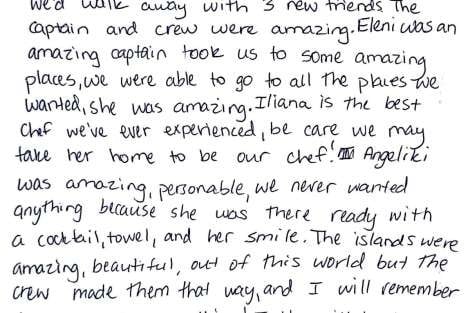 we'd walk away with 3 new friends The
captain and crew were amazing. Eleni was an
amazing captain took us to some amazing
places, we were able to go to all the places we
wanted, she was amazing. Iliana is the best
chef we've ever experienced, be care we may
take her home to be our chef! Angeliki
was amazing, personable, we never wanted
anything because she was there ready with
a cocktail, towel, and her smile. The islands were
amazing, beautiful, out of this world but the
crew made them that way, and I will remember